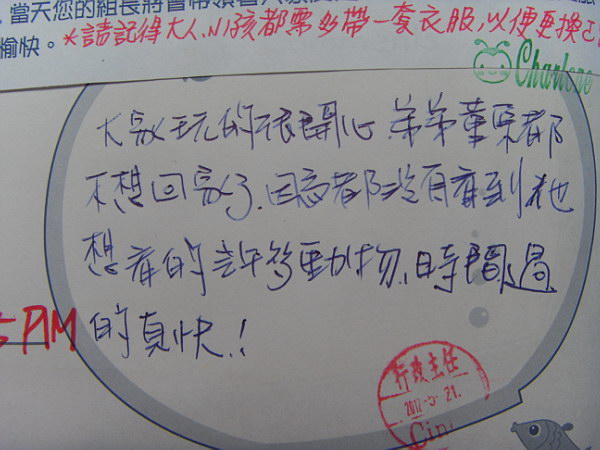 當天您的組長將會帶領著大家
愉快。*請記得大人、小孩都需多帶一套衣服,以便更換
Charlene
大家玩的很開心 弟弟葦宸都
不想回家了.因為都沒有看到他
想看的許多動物、時間過
5 PM 的真快.!
行政主任
Cin